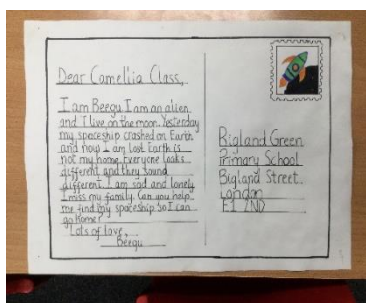 Dear Camellia Class,
I am Beegu. I am an alien
and I live on the moon. Yesterday
my spaceship crashed on Earth
and now I am lost. Earth is
not my home. Everyone looks
different and they sound
different. I am sad and lonely
I miss my family. Can you help
me find my spaceship so I can
go home?
Lots of love,
Beegu
Bigland Green
Primary School
Bigland Street
London
E1 2ND